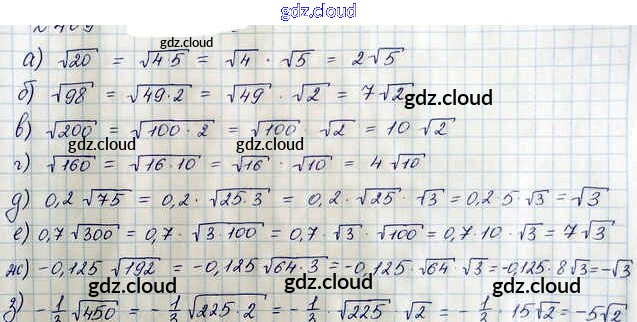 gdz.cloud
№ 409
gdz.cloud
а) √20 = √4·5 = √4 · √5 = 2√5
б) √98 = √49·2 = √49 · √2 = 7√2
gdz.cloud
gdz.cloud
в) √200 = √100·2 = √100 · √2 = 10√2
gdz.cloud
gdz.cloud
г) √160 = √16·10 = √16 · √10 = 4√10
gdz.cloud
д) 0,2·√75 = 0,2·√25·3 = 0,2·√25 · √3 = 0,2·5·√3 = √3
е) 0,7√300 = 0,7·√3·100 = 0,7·√3 · √100 = 0,7·10·√3 = 7√3
gdz.cloud
ж) -0,125√192 = -0,125√64·3 = -0,125·√64·√3 = -0,125·8√3 = -√3
gdz.cloud
gdz.cloud
з) -1/3√450 = -1/3√225·2 = -1/3·√225 · √2 = -1/3·15√2 = -5√2